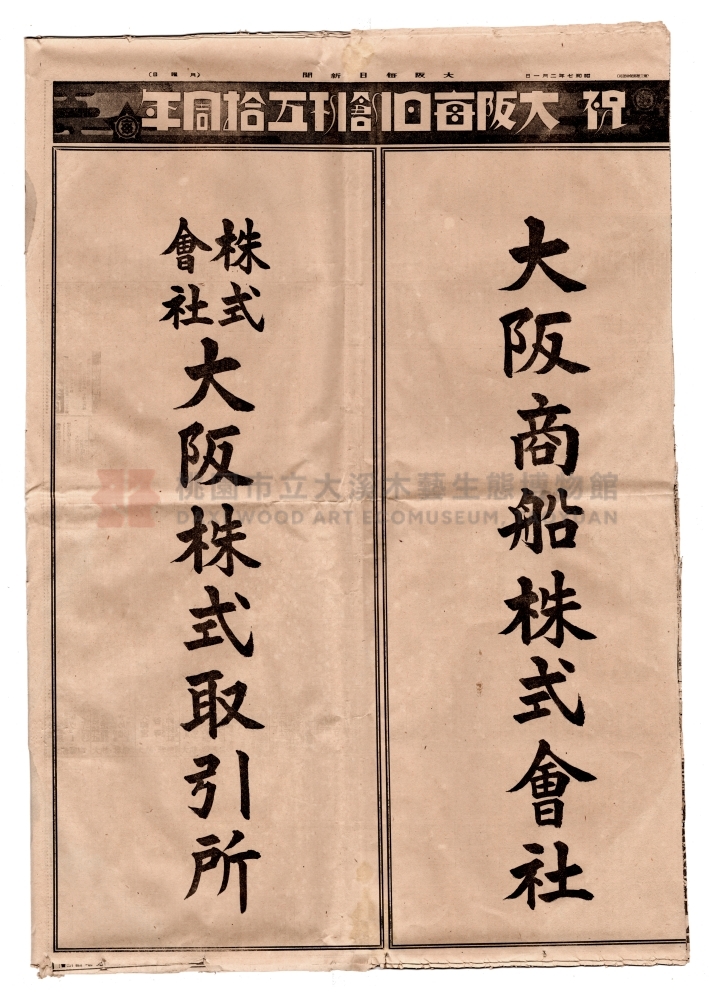 昭和七年二月一日
大阪毎日新聞
(月曜日)
祝 大阪毎日創刊五拾周年
大阪商船株式會社
株式
會社
大阪株式取引所
桃園市立大溪木藝生態博物館
DAXI WOOD ART ECOMUSEUM, TAOYUAN